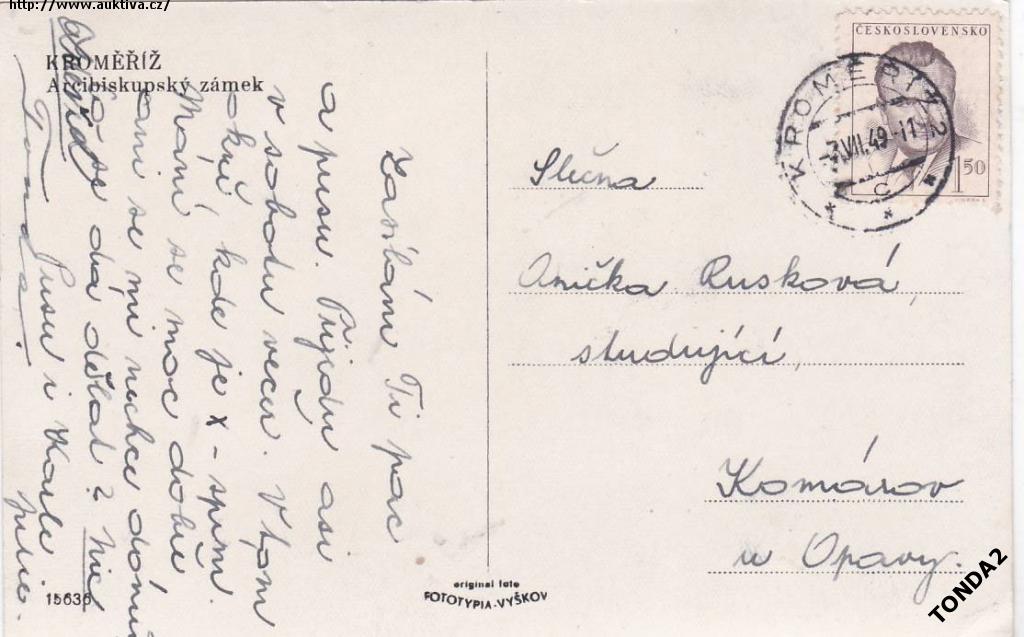 http://www.auktiva.cz/
KROMĚŘÍŽ
Arcibiskupský zámek
Zasílám Ti pac
a pusu. Přijedu asi
v sobotu večer. V tom
okně kde je x - spím.
Mám se moc dobře
ani se mi nechce domů
se dá dělat? Nic
Pusu i Karle
Julie.
ČESKOSLOVENSKO
1.50
KROMĚŘÍŽ 2
-7.VII.49-11
C
Slečna
Anička Rusková,
studující,
Komárov
u Opavy.
15636
original foto
FOTOTYPIA-VYŠKOV
TONDA2